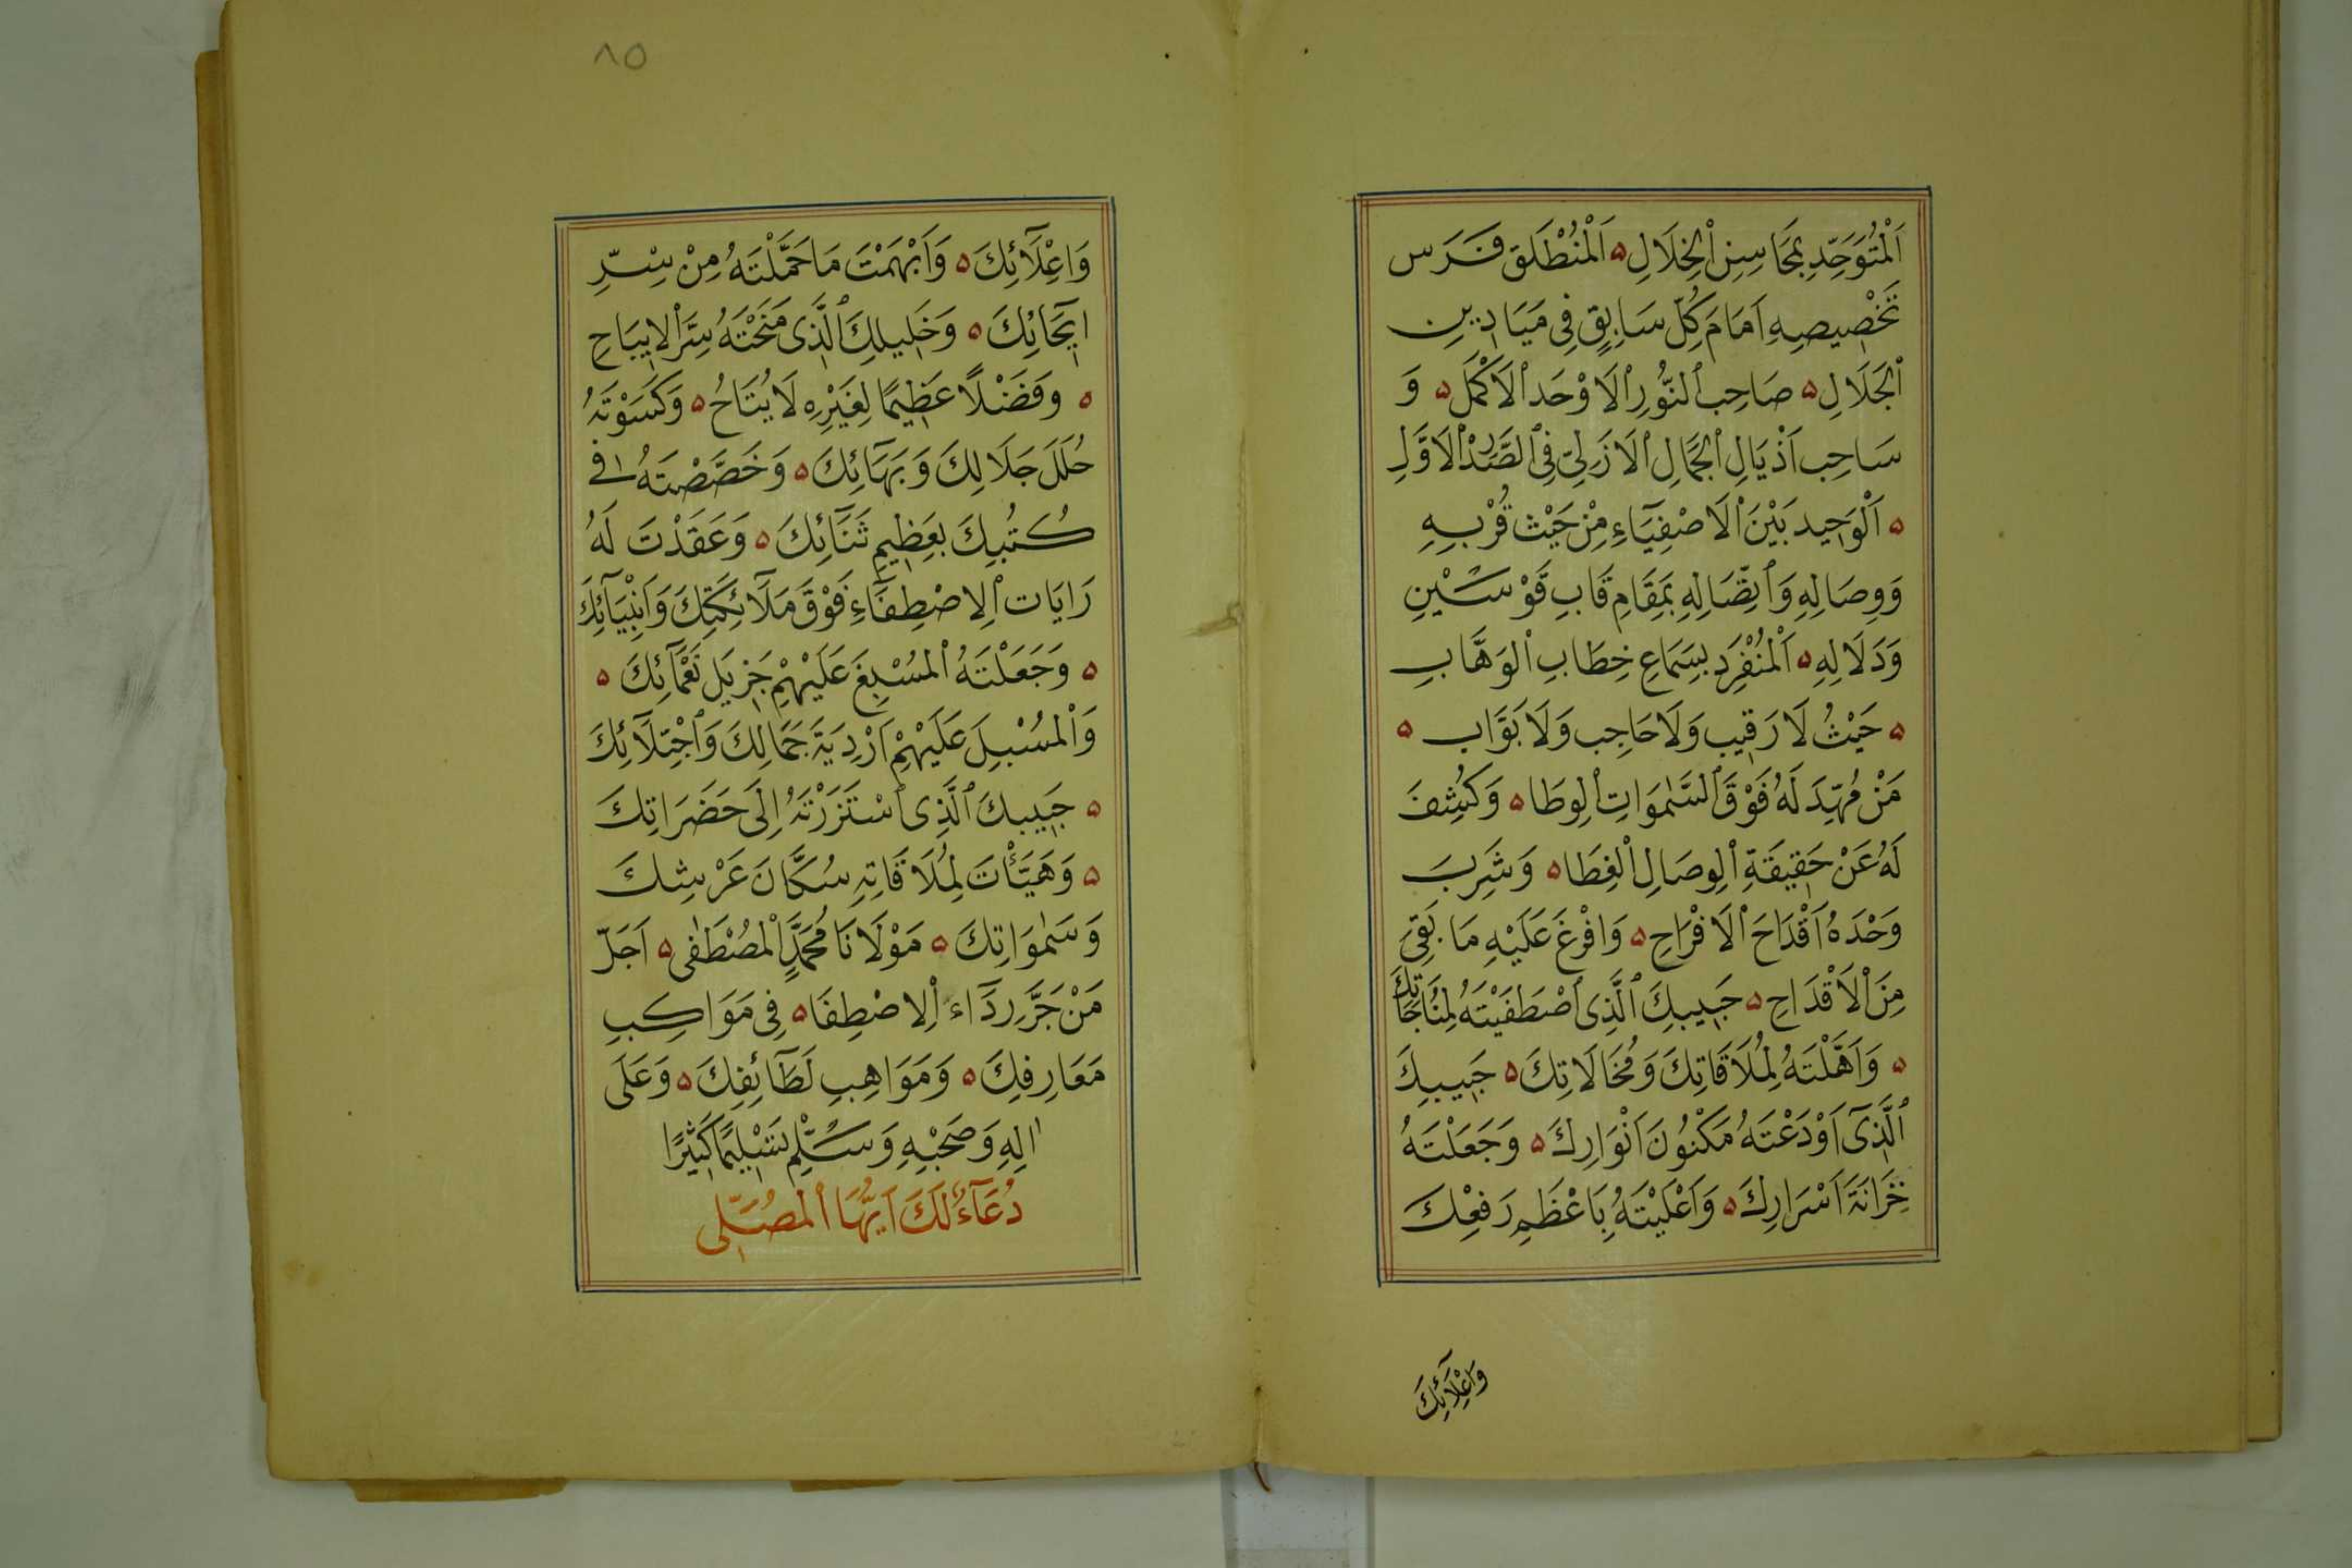 اَلْمُتَوَحِّدِ بِمَحَاسِنِ الْخِلَالِ ۵ اَلْمُنْطَلَقِ فَرَس
تَخْصِيصِهِ اَمَامَ كُلِّ سَابِقٍ فِى مَيَادِينِ
الْجَلَالِ ۵ صَاحِبِ النُّورِ الْاَوْحَدِ الْاَكْمَلِ ۵ وَ
سَاحِبِ اَذْيَالِ الْجَمَالِ الْاَزَلِىِّ فِى الصَّدْرِ الْاَوَّلِ
۵ اَلْوَحِيدِ بَيْنَ الْاَصْفِيَآءِ مِنْ حَيْث قُرْبِهِ
وَوِصَالِهِ وَاتِّصَالِهِ بِمَقَامِ قَابِ قَوْسَيْنِ
وَدَلَالِهِ ۵ اَلْمُنْفَرِدِ بِسَمَاعِ خِطَابِ الْوَهَّابِ
۵ حَيْثُ لَا رَقِيب وَلَا حَاجِب وَلَا بَوَّاب ۵
مَنْ مُهِّدَ لَهُ فَوْقَ السَّمٰوَاتِ الْوِطَا ۵ وَكُشِفَ
لَهُ عَنْ حَقِيقَةِ الْوِصَالِ الْغِطَا ۵ وَشَرِبَ
وَحْدَهُ اَقْدَاحَ الْاَفْرَاحِ ۵ وَافْرَغَ عَلَيْهِ مَا بَقِىَ
مِنَ الْاَقْدَاحِ ۵ حَبِيبِكَ الَّذِى اصْطَفَيْتَهُ لِمُنَاجَاتِكَ
۵ وَاَهَّلْتَهُ لِمُلَاقَاتِكَ وَمُخَالَاتِكَ ۵ حَبِيبِكَ
الَّذِىٓ اَوْدَعْتَهُ مَكْنُونَ اَنْوَارِكَ ۵ وَجَعَلْتَهُ
خَزَانَةَ اَسْرَارِكَ ۵ وَاَعْلَيْتَهُ بِاَعْظَمِ رَفْعِكَ
وَاعْلَآئِكَ
٨٥
وَاعْلَآئِكَ ۵ وَاَبْهَمْتَ مَا حَمَّلْتَهُ مِنْ سِرِّ
اِيحَائِكَ ۵ وَخَلِيلِكَ الَّذِى مَنَحْتَهُ سِرَّ الْاِيبَاحِ
۵ وَفَضْلًا عَظِيمًا لِغَيْرِهِ لَا يُتَاحُ ۵ وَكَسَوْتَهُ
حُلَلَ جَلَالِكَ وَبَهَآئِكَ ۵ وَخَصَّصْتَهُ فِى
كُتُبِكَ بِعَظِيمِ ثَنَآئِكَ ۵ وَعَقَدْتَ لَهُ
رَايَات الْاِصْطِفَآءِ فَوْقَ مَلَآئِكَتِكَ وَاَنْبِيَآئِكَ
۵ وَجَعَلْتَهُ الْمُسْبِغَ عَلَيْهِمْ جَزِيلَ نَعْمَآئِكَ ۵
وَالْمُسْبِلَ عَلَيْهِمْ اَرْدِيَةَ جَمَالِكَ وَاجْتِلَآئِكَ
۵ حَبِيبِكَ الَّذِى اسْتَزَرْتَهُ اِلَى حَضَرَاتِكَ
۵ وَهَيَّأْتَ لِمُلَاقَاتِهِ سُكَّانَ عَرْشِكَ
وَسَمٰوَاتِكَ ۵ مَوْلَانَا مُحَمَّدٍ الْمُصْطَفٰى ۵ اَجَلِّ
مَنْ جَرَّ رِدَآءَ الْاِصْطِفَا ۵ فِى مَوَاكِبِ
مَعَارِفِكَ ۵ وَمَوَاهِبِ لَطَآئِفِكَ ۵ وَعَلَى
اٰلِهِ وَصَحْبِهِ وَسَلِّمْ تَسْلِيمًا كَثِيرًا
دُعَآءٌ لَكَ اَيُّهَا الْمُصَلِّى